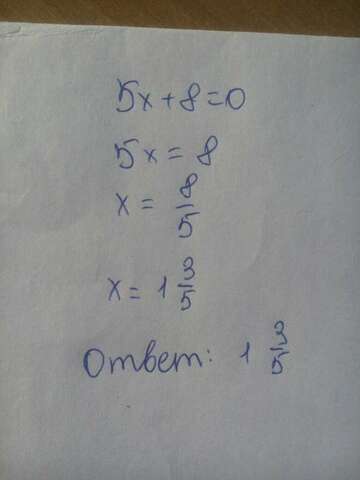 5x+8=0
5x=8
x=8/5
x=1 3/5
Ответ: 1 3/5